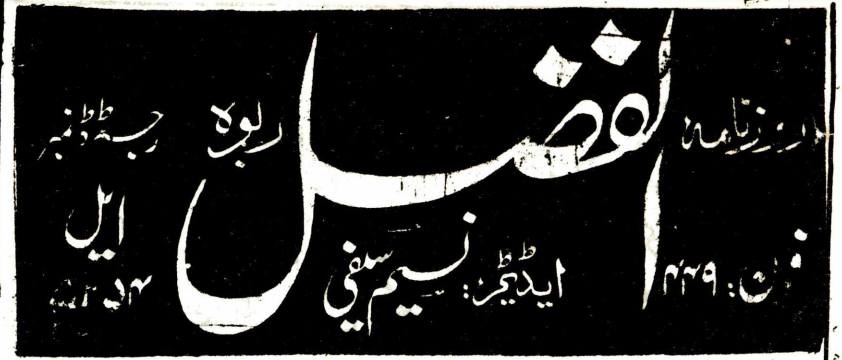 روزنامہ الفضل ربوہ رجسٹرڈ نمبر
ایل
فون: ۴۴۹ ایڈیٹر: نسیم سیفی